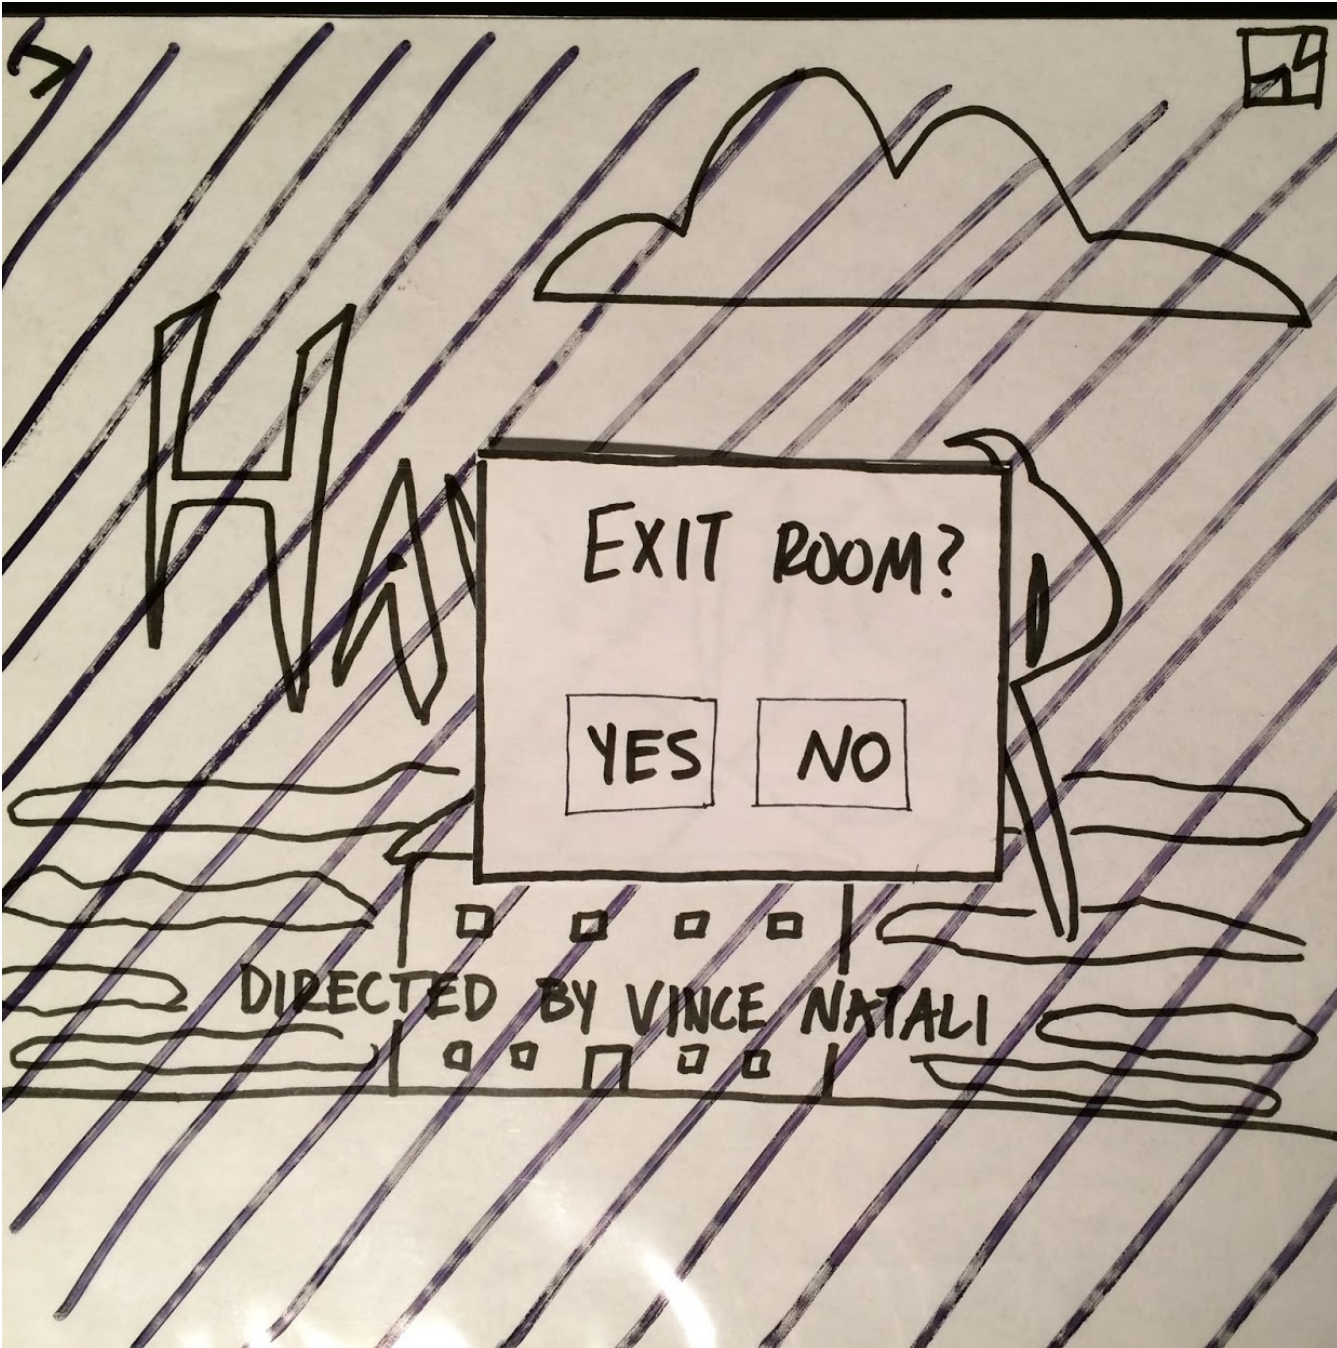 Ha
EXIT ROOM?
YES NO
DIRECTED BY VINCE NATALI